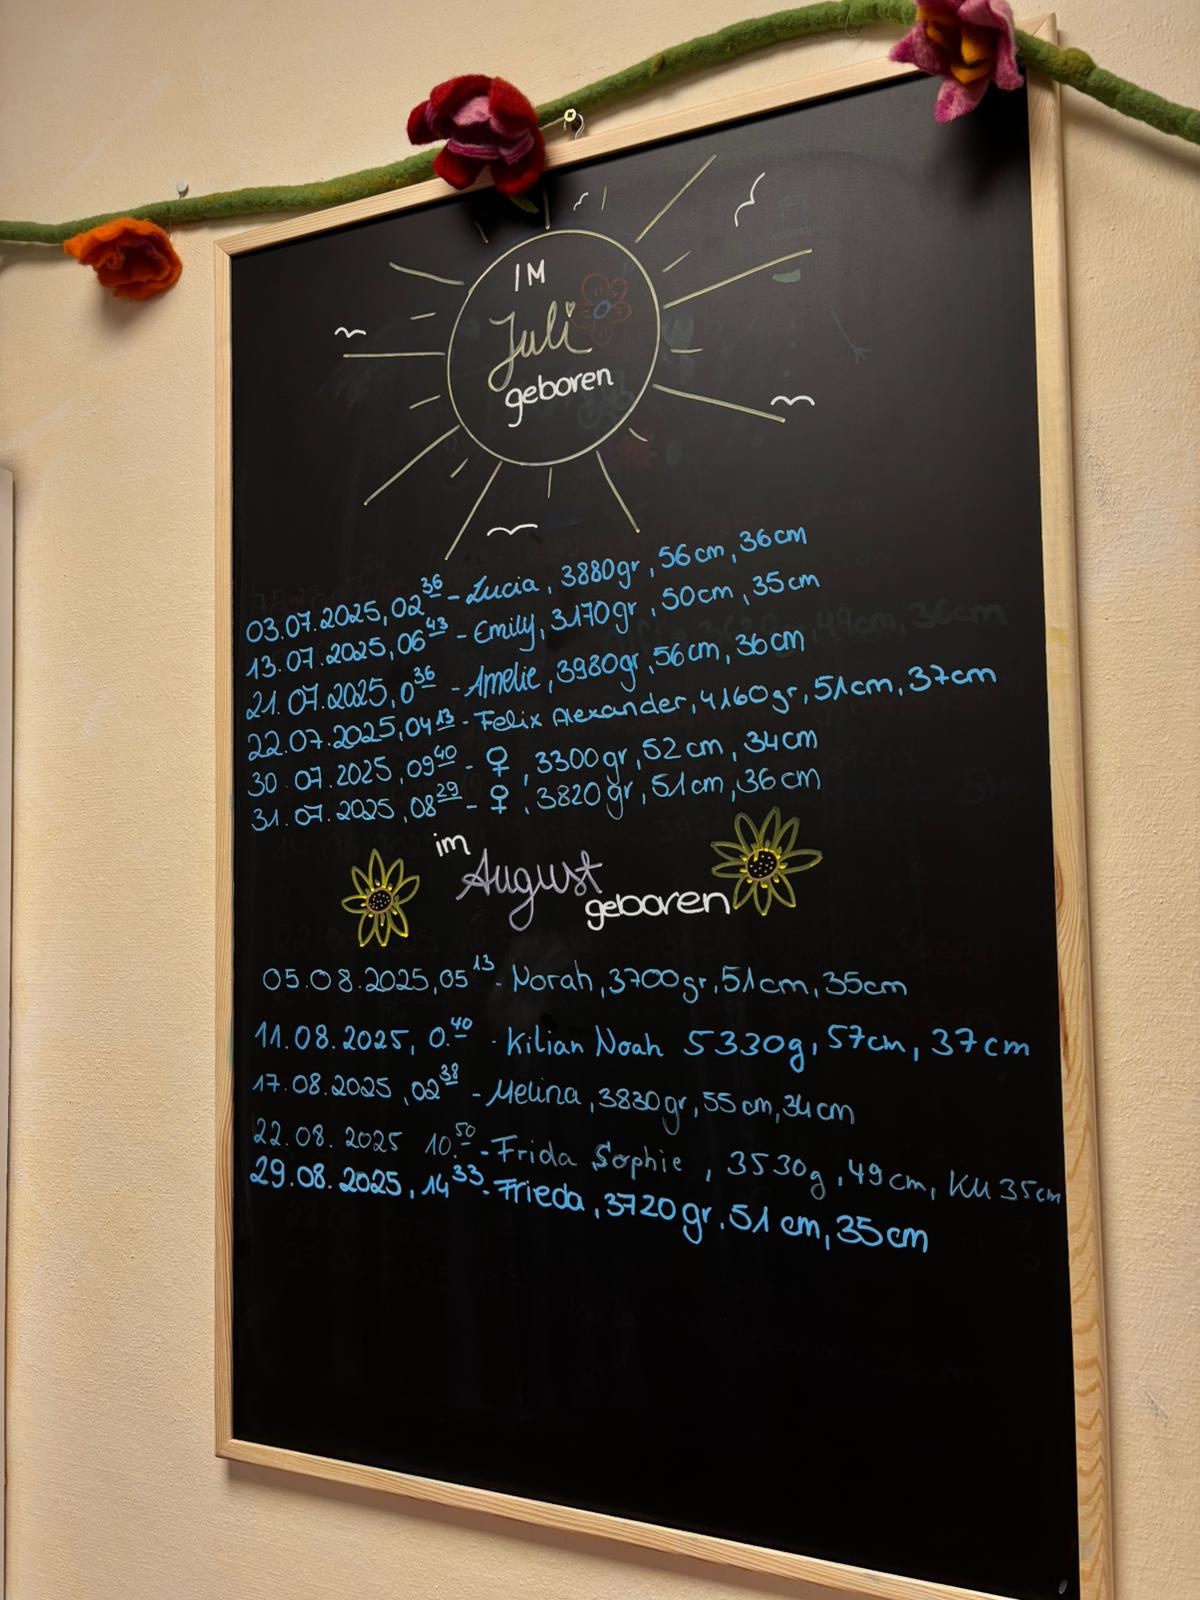 IM
Juli
geboren
03.07.2025, 02 36 - Lucia, 3880gr, 56cm, 36cm
13.07.2025, 06 43 - Emily, 3170gr, 50cm, 35cm
21.07.2025, 0 36 - Amelie, 3980gr, 56cm, 36cm
22.07.2025, 04 13 - Felix Alexander, 4160gr, 51cm, 37cm
30.07.2025, 09 40 - ♀, 3300gr, 52cm, 34cm
31.07.2025, 08 29 - ♀, 3820gr, 51cm, 36cm
im
August
geboren
05.08.2025, 05 13 - Norah, 3700gr, 51cm, 35cm
11.08.2025, 0. 40 - Kilian Noah 5330g, 57cm, 37cm
17.08.2025, 02 38 - Melina, 3830gr, 55cm, 34cm
22.08.2025 10. 50 - Frida Sophie, 3530g, 49cm, KU 35cm
29.08.2025, 14 33 - Frieda, 3720gr, 51cm, 35cm